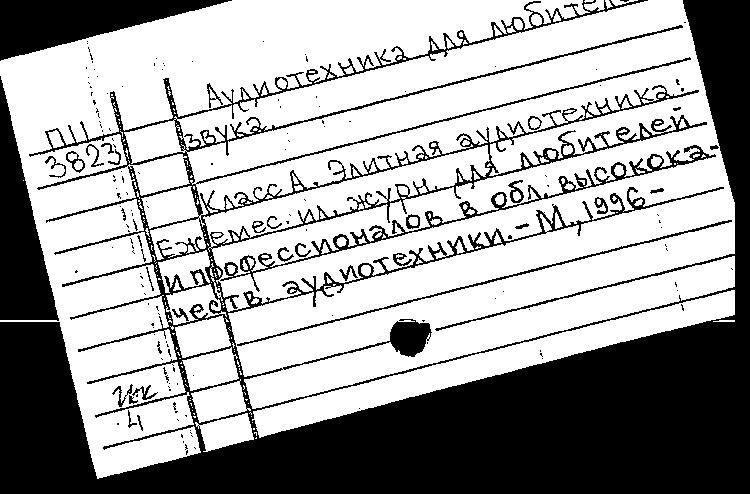 Аудиотехника для любителе
звука.
П11
3823
Класс А. Элитная аудиотехника:
Ежемес. ил. журн. для любителей
и профессионалов в обл. высокока-
честв. аудиотехники. - М., 1996 -
4